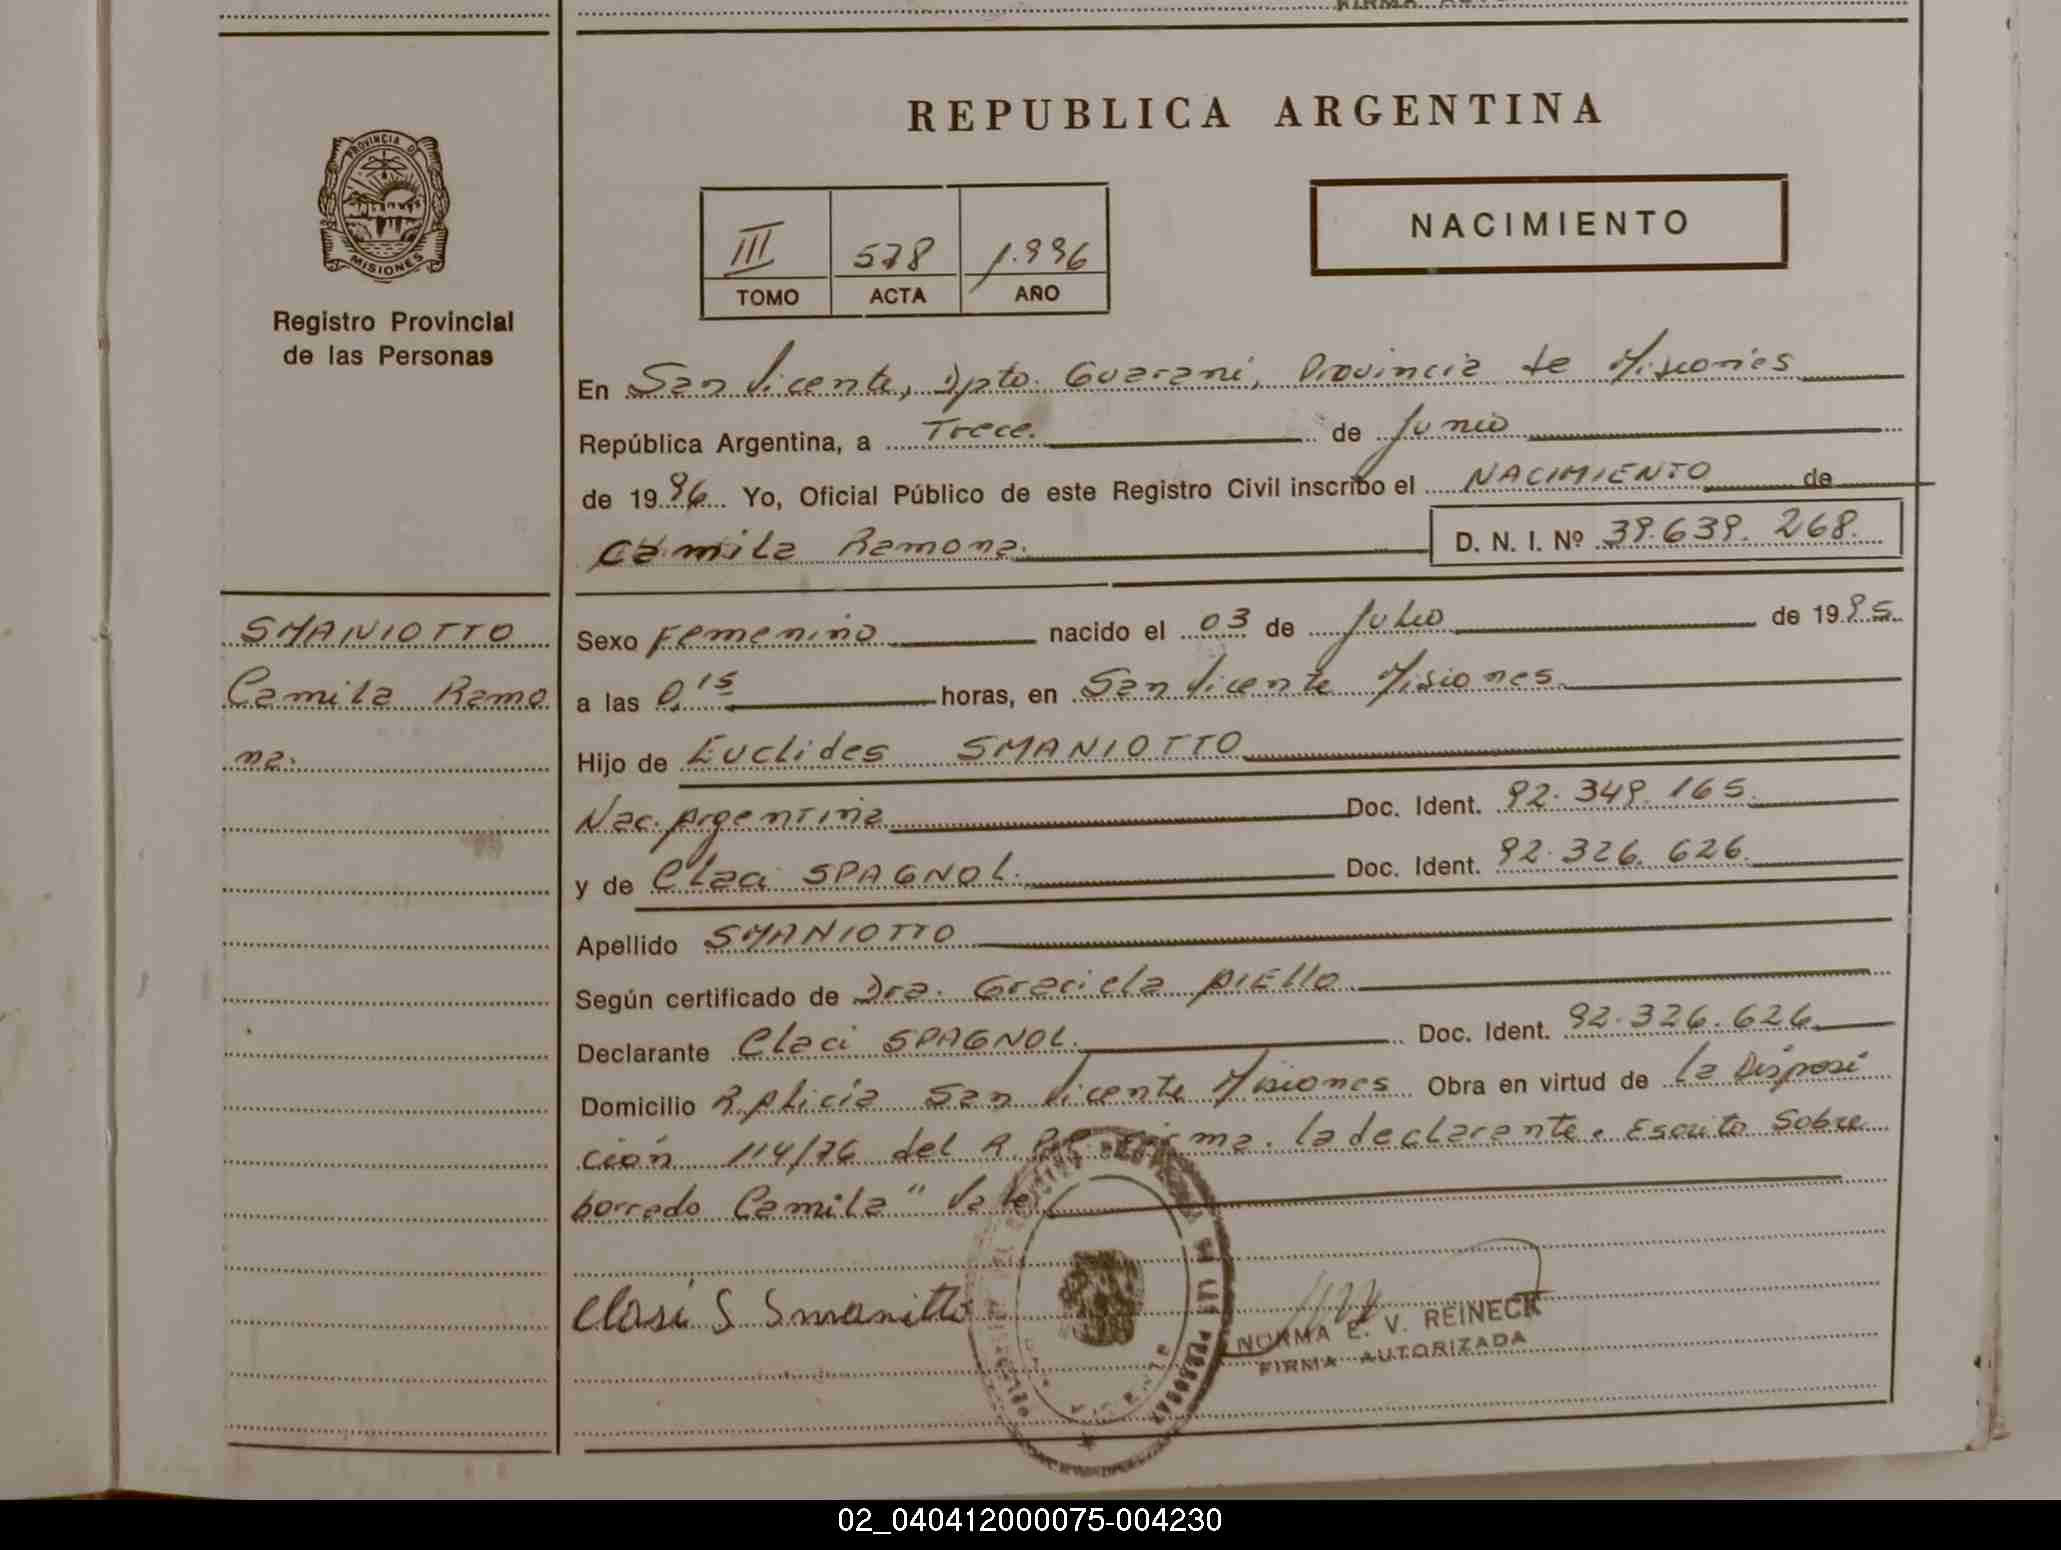 FIRMA
REPUBLICA ARGENTINA
PROVINCIA DE
MISIONES
Registro Provincial
de las Personas
III 578 1.996
TOMO ACTA AÑO
NACIMIENTO
En San Vicente, Dpto. Guarani, Provincia de Misiones
República Argentina, a Trece. de Junio
de 1996 Yo, Oficial Público de este Registro Civil inscribo el NACIMIENTO de
Camila Ramona. D. N. I. Nº 39.639.268.
SMANIOTTO
Camila Ramo
na.
Sexo Femenino nacido el 03 de Julio de 1995.
a las 0,15 horas, en San Vicente Misiones.
Hijo de Euclides SMANIOTTO
Nac. Argentina Doc. Ident. 92.349.165.
y de Claci SPAGNOL. Doc. Ident. 92.326.626.
Apellido SMANIOTTO
Según certificado de Dra. Graciela DIELLO.
Declarante Claci SPAGNOL. Doc. Ident. 92.326.626
Domicilio San Vicente Misiones Obra en virtud de la Disposi
ción 114/76 del R.P.P. Firma. la declarante. Escrito Sobre
borrado Camila" Vale
Clasi S Smanitto
NORMA E. V. REINECK
FIRMA AUTORIZADA
02_040412000075-004230